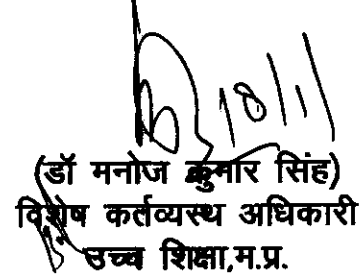 18/1/
(डॉ मनोज कुमार सिंह)
विशेष कर्तव्यस्थ अधिकारी
उच्च शिक्षा,म.प्र.